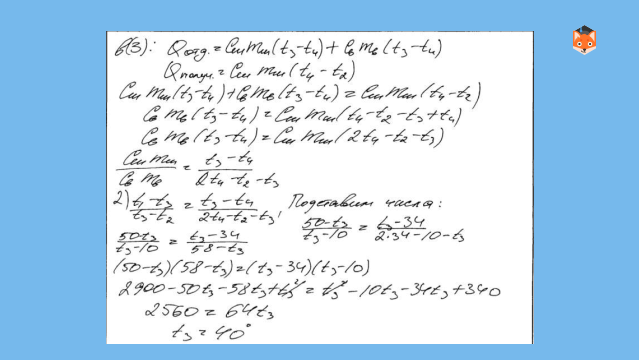 б(3): Qотд. = Cшmш(t₃-t₄) + Cвmв(t₃-t₄)
Qполуч. = Cшmш(t₄-t₂)
Cшmш(t₃-t₄)+Cвmв(t₃-t₄) = Cшmш(t₄-t₂)
Cвmв(t₃-t₄) = Cшmш(t₄-t₂-t₃+t₄)
Cвmв(t₃-t₄) = Cшmш(2t₄-t₂-t₃)
Cшmш/Cвmв = (t₃-t₄)/(2t₄-t₂-t₃)
2) (t₁-t₃)/(t₃-t₂) = (t₃-t₄)/(2t₄-t₂-t₃), Подставим числа:
(50-t₃)/(t₃-10) = (t₃-34)/(2·34-10-t₃)
(50-t₃)/(t₃-10) = (t₃-34)/(58-t₃)
(50-t₃)(58-t₃)=(t₃-34)(t₃-10)
2900-50t₃-58t₃+t₃² = t₃²-10t₃-34t₃+340
2560 = 64t₃
t₃ = 40°